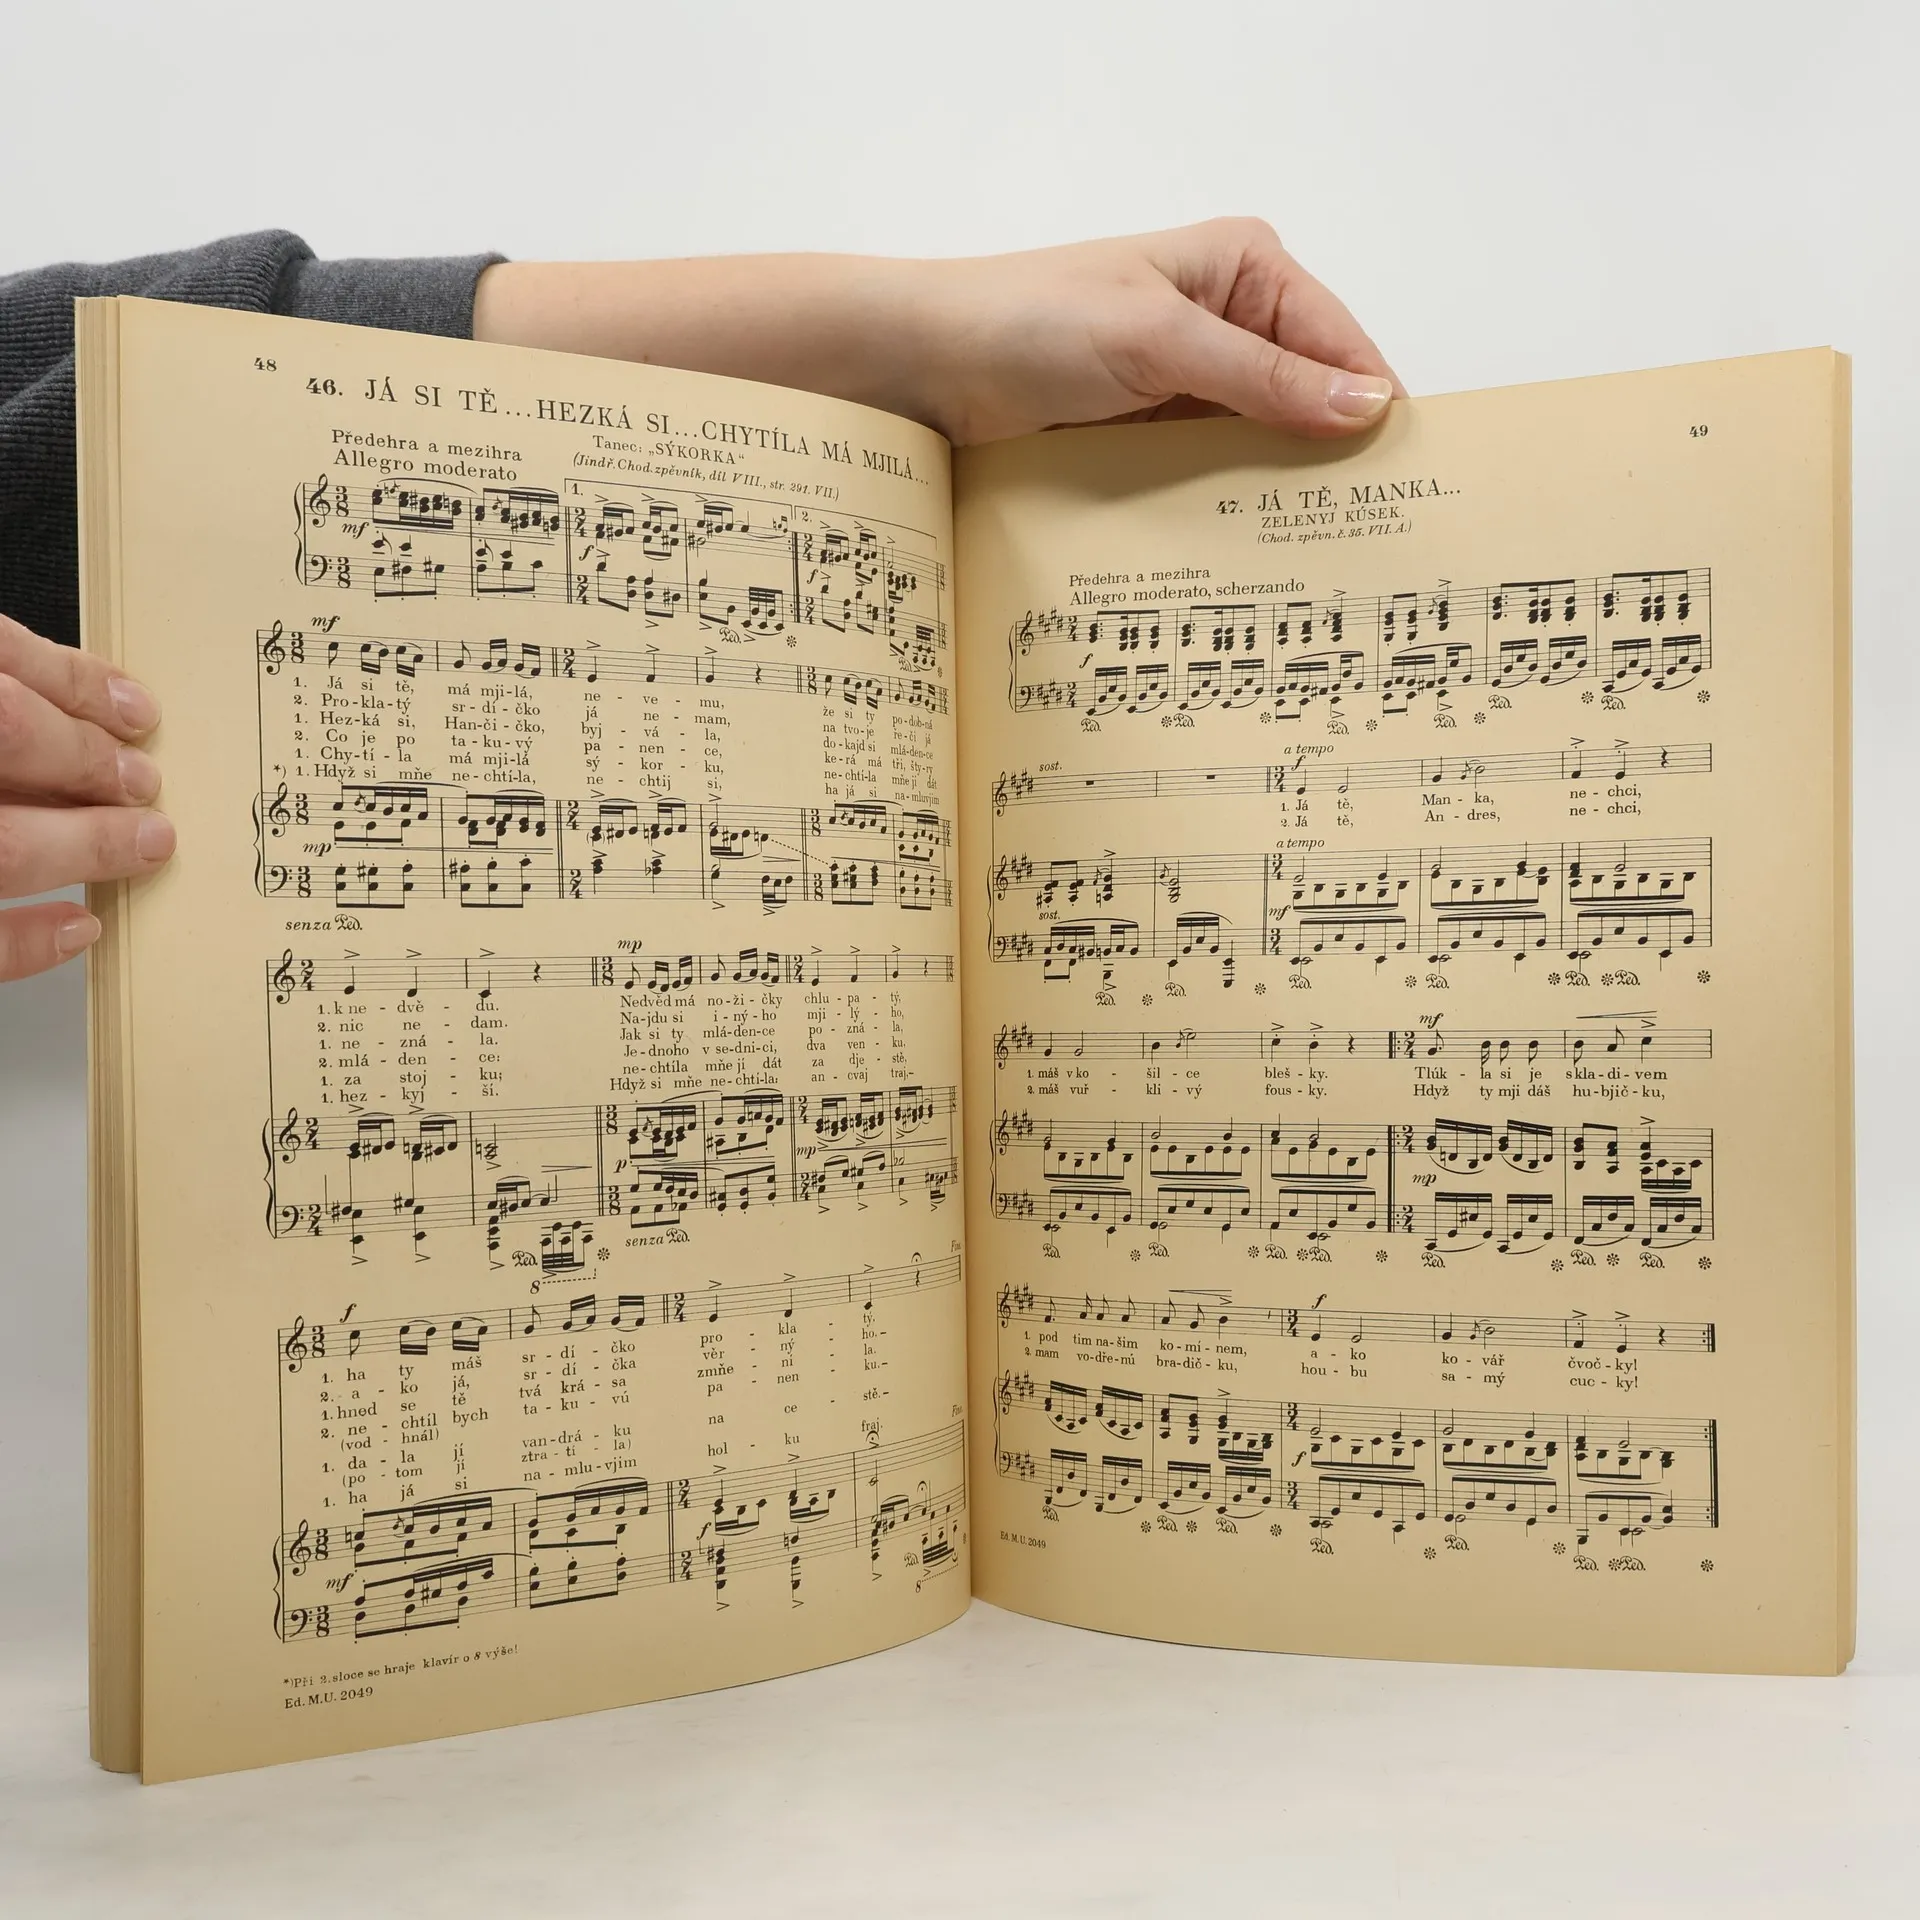 48
46. JÁ SI TĚ...HEZKÁ SI...CHYTÍLA MÁ MJILÁ...
Tanec: „SÝKORKA“
(Jindř. Chod. zpěvník, díl VIII., str. 291. VII.)
Předehra a mezihra
Allegro moderato
1.
2.
mf
f
f
Ped.
Ped.
mf
1. Já si tě, má mji-lá, ne - ve - mu, že si ty po-dob-ná
2. Pro-kla-tý sr-dí-čko já ne - mam, na tvo-je re-či já
1. Hez-ká si, Han-či-čko, byj - vá - la, do-kajd si mlá-den-ce
2. Co je po ta-ku-vý pa - nen - ce, ke-rá má tři, šty-ry
1. Chy-tí-la má mji-lá sý - kor - ku, ne-chtí-la mňe jí dát
*) 1. Hdyž si mňe ne-chtí-la, ne - chtij si, ha já si na-mluvjim
mp
senza Ped.
mp
1. k ne - dvě - du. Nedvěd má no-ži-čky chlu-pa-tý,
2. nic ne - dam. Na-jdu si i-ný-ho mji-lý-ho,
1. ne - zná - la. Jak si ty mlá-den-ce po-zná-la,
2. mlá - den - ce: Je-dnoho v se-dni-ci, dva ven-ku,
1. za stoj - ku; ne-chtíla mňe jí dát za dje-stě,
1. hez - kyj - ší. Hdyž si mňe ne-chtí-la: an-cvaj traj.-
p
mp
Ped.
8
senza Ped.
Fine
f
1. ha ty máš sr-dí-čko pro - kla - tý.
2. a - ko já, sr-dí-čka věr - ný - ho.-
1. hned se tě tvá krá-sa zmňe - ni - la.
2. ne - chtíl bych ta-ku-vú pa - nen - ku.-
(vod - hnál)
1. da - la jí van-drá-ku na ce - stě.-
(po - tom jí ztra-ti-la)
1. ha já si na-mlu-vjim hol - ku fraj.
Fine
mf
f
Ped.
8
*)Při 2. sloce se hraje klavír o 8 výše!
Ed. M.U. 2049
49
47. JÁ TĚ, MANKA...
ZELENYJ KÚSEK.
(Chod. zpěvn. č. 35. VII. A.)
Předehra a mezihra
Allegro moderato, scherzando
f
Ped. Ped. Ped. Ped. Ped. Ped.
sost.
a tempo
f
1. Já tě, Man-ka, ne-chci,
2. Já tě, An-dres, ne-chci,
a tempo
sost.
mf
Ped. Ped. Ped. Ped. Ped. Ped.
mf
1. máš v ko - šil - ce bleš - ky. Tlúk - la si je skla-di-vem
2. máš vuř - kli - vý fous - ky. Hdyž ty mji dáš hu-bjič-ku,
mp
Ped. Ped. Ped. Ped. Ped. Ped. Ped.
f
1. pod tim na-šim ko-mí-nem, a - ko ko - vář čvoč - ky!
2. mam vo-dře-nú bra-dič-ku, hou - bu sa - mý cuc - ky!
f
Ped. Ped. Ped. Ped. Ped. Ped. Ped.
Ed. M.U. 2049